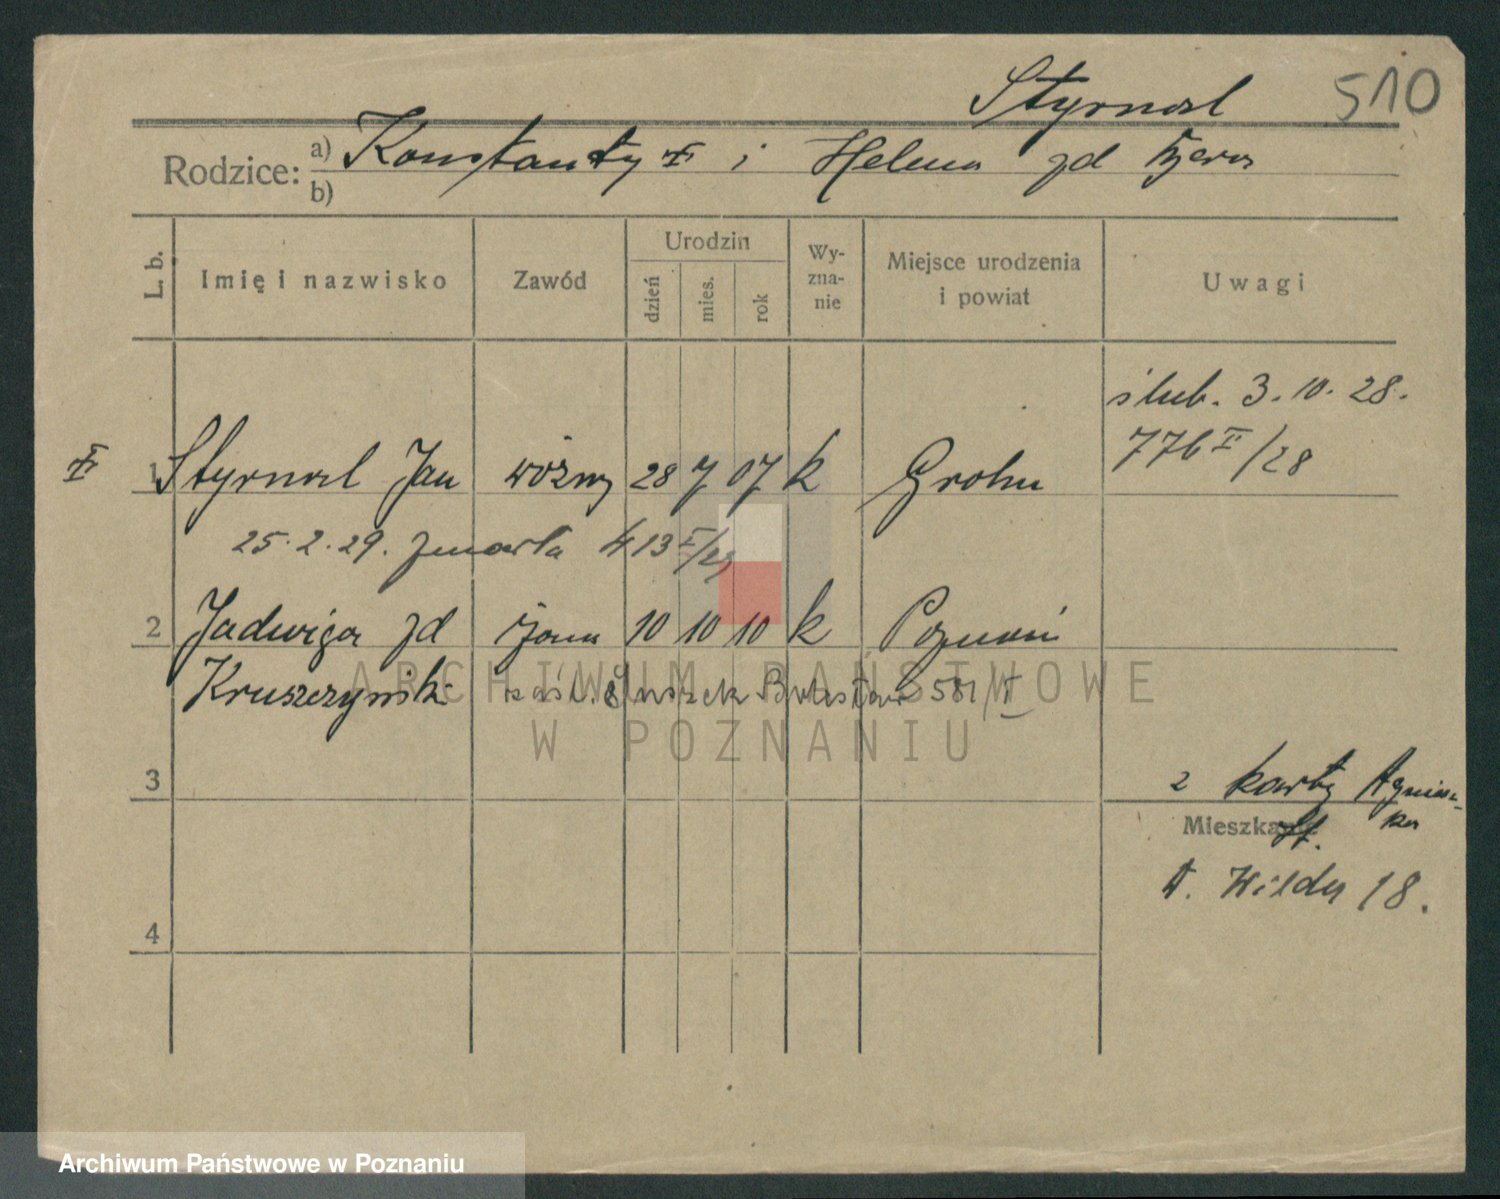 Styrnol 510
Rodzice: a) Konstanty i Helena zd
b)
L. b. Imię i nazwisko Zawód Urodzin dzień mies. rok Wy-zna-nie Miejsce urodzenia i powiat Uwagi
ślub. 3. 10. 28.
776 II/28
1 Styrnol Jan woźny 28 7 07 k
25. 2. 29. zmarła 413 I/29
2 Jadwiga zd żona 10 10 10 k Poznań
zaśl. Bolesław 581/II
ARCHIWUM PAŃSTWOWE
W POZNANIU
3
2 karty Agniesz-
ka
Mieszka
St.
4
D. Wilda 18.
Archiwum Państwowe w Poznaniu